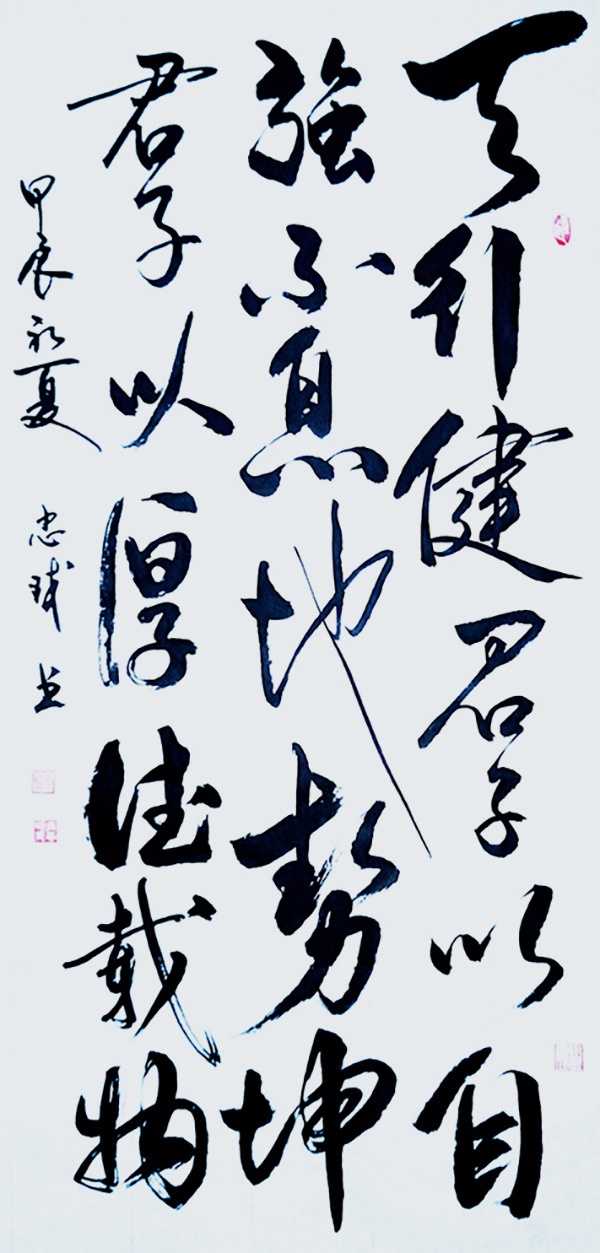 天行健君子以自
強不息地勢坤
君子以厚德載物
甲辰初夏 忠 书